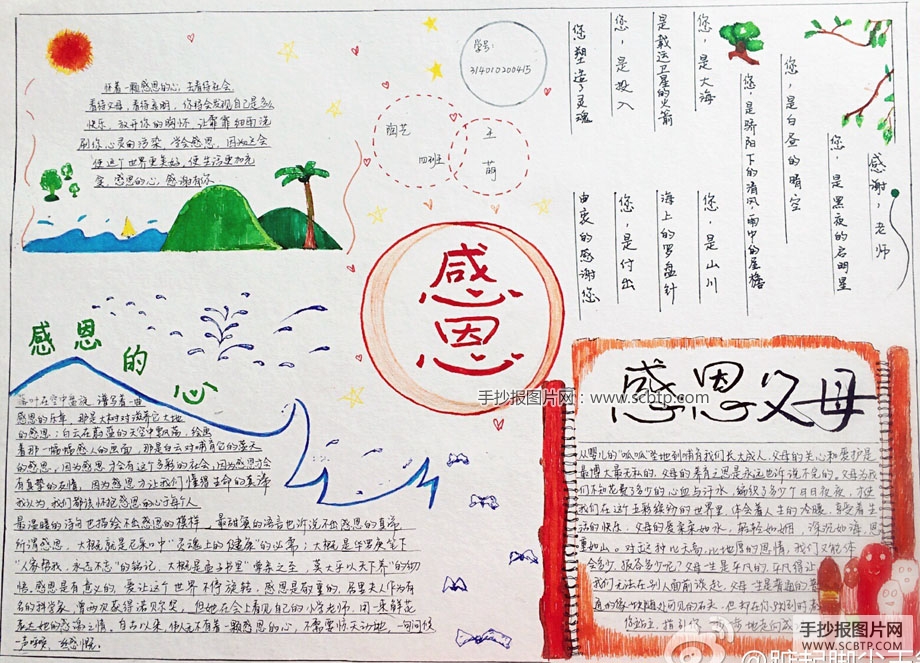 怀着一颗感恩的心,去看待社会,
看待父母,看待亲朋,你将会发现自己是多么
快乐,放开你的胸怀,让霏霏细雨洗
刷你心灵的污染。学会感恩,因为这会
使这个世界更美好,使生活更加充
实。感恩的心,感谢有你
学号:
314010200415
陶艺
四班
王
萌
感谢,老师
您,是黑夜的启明星
您,是白昼的晴空
您,是骄阳下的清风,雨中的屋檐
您,是大海
您,是山川
是载运卫星的火箭
海上的罗盘针
您,是投入
您,是付出
您塑造了灵魂
由衷的感谢您
感恩
感恩的心
落叶在空中盘旋,谱写着一曲
感恩的乐章,那是大树对滋养它大地
的感恩;白云在蔚蓝的天空中飘荡,绘画
着那一幅幅感人的画面,那是白云对哺育它的蓝天
的感恩。因为感恩才会有这个多彩的社会,因为感恩才会
有真挚的友情,因为感恩才让我们懂得生命的真谛
我认为我们都该怀抱感恩的心每个人
最温暖的诗句也描绘不出感恩的模样,最甜蜜的语言也诉说不出感恩的真帝
所谓感恩,大概就是尼采口中"灵魂上的健康"的必需;大概是华罗庚笔下
"人家帮我,永志不忘"的铭记,大概是孟子书里"
及之至,莫大乎以天下养"的彻
悟,感恩是有意义的,爱让这个世界不停旋转,感恩是有重的,居里夫人作为有
名的科学家,曾两次获得诺贝尔奖,但她在会上看见自己的小学老师,用一束鲜花
表达她的感激之情。自古以来,伟人无不有着一颗感恩的心,不需要惊天动地,一句问候
一声呼唤,一丝感慨。
手抄报图片网:www.scbtp.com
感恩父母
从婴儿的"呱呱"坠地到哺育我们长大成人,父母的关心和爱护是
最博大最无私的,父母的养育之恩是永远也诉说不完的。父母为我
们不知花费了多少的心血与汗水,编织了多少个日日夜夜,才使
我们在这五彩缤纷的世界里,体会着人生的冷暖,享受着生
活的快乐,
深沉如海,恩
重如山。对这种比天高,比地厚的恩情,我们又能体
会多少,报答多少呢?父母一生是平凡的,平凡得让
我们无法在别人面前谈起,父母一生是普通的,普
手抄报图片网
WWW.SCBTP.COM